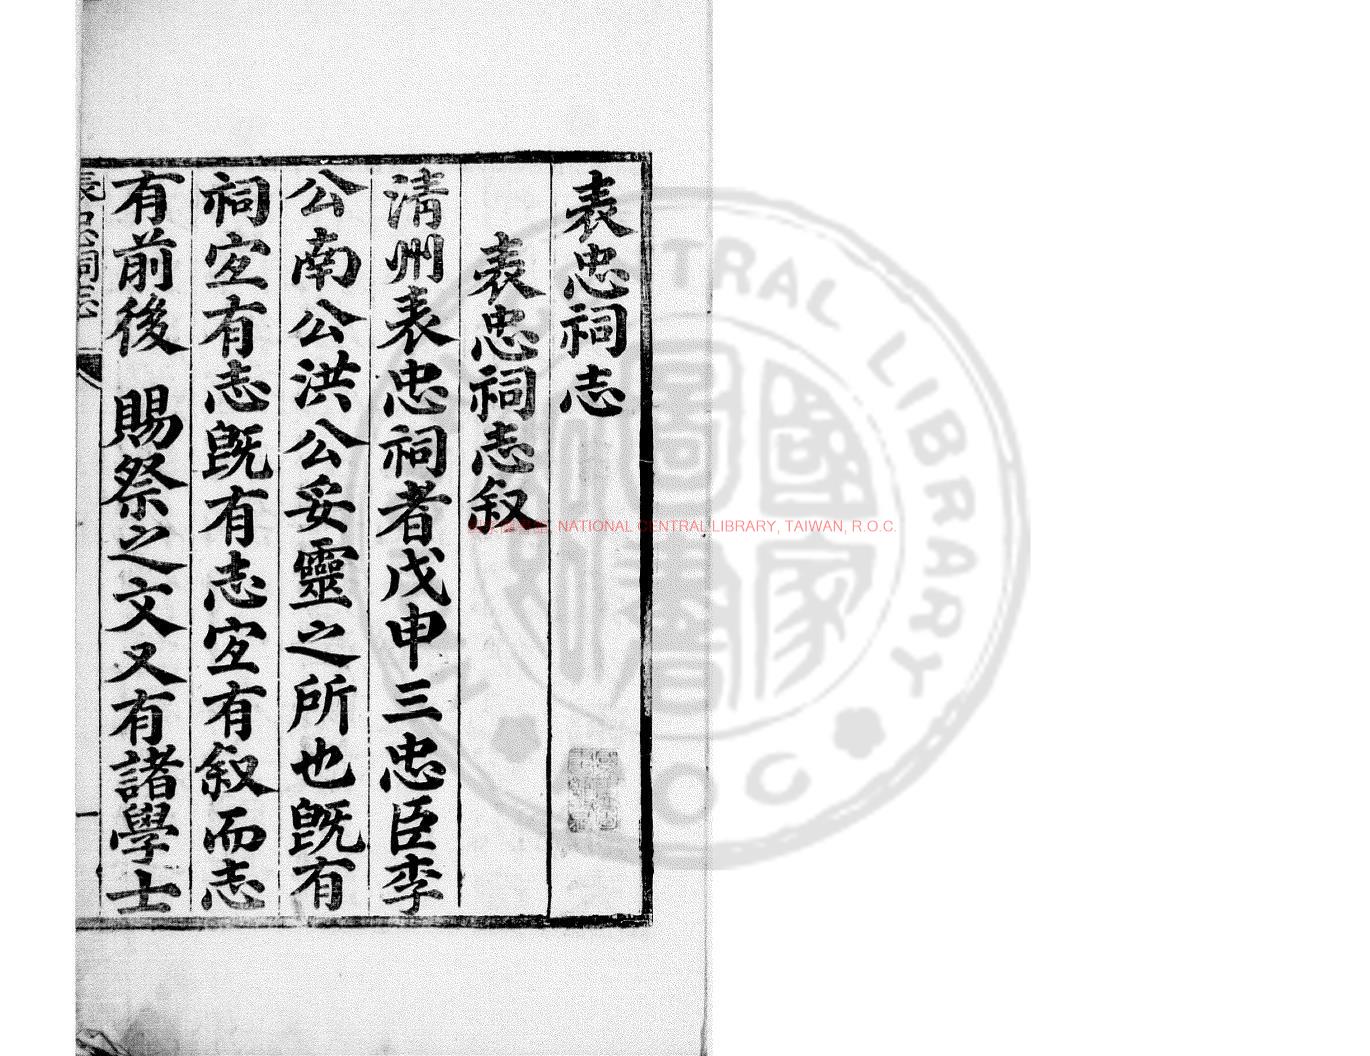 表忠祠志
表忠祠志叙
清州表忠祠者戊申三忠臣李
公南公洪公妥靈之所也旣有
祠宜有志旣有志宜有叙而志
有前後 賜祭之文又有諸學士
表忠祠志
一
NATIONAL CENTRAL LIBRARY, TAIWAN, R.O.C.
國家圖書館